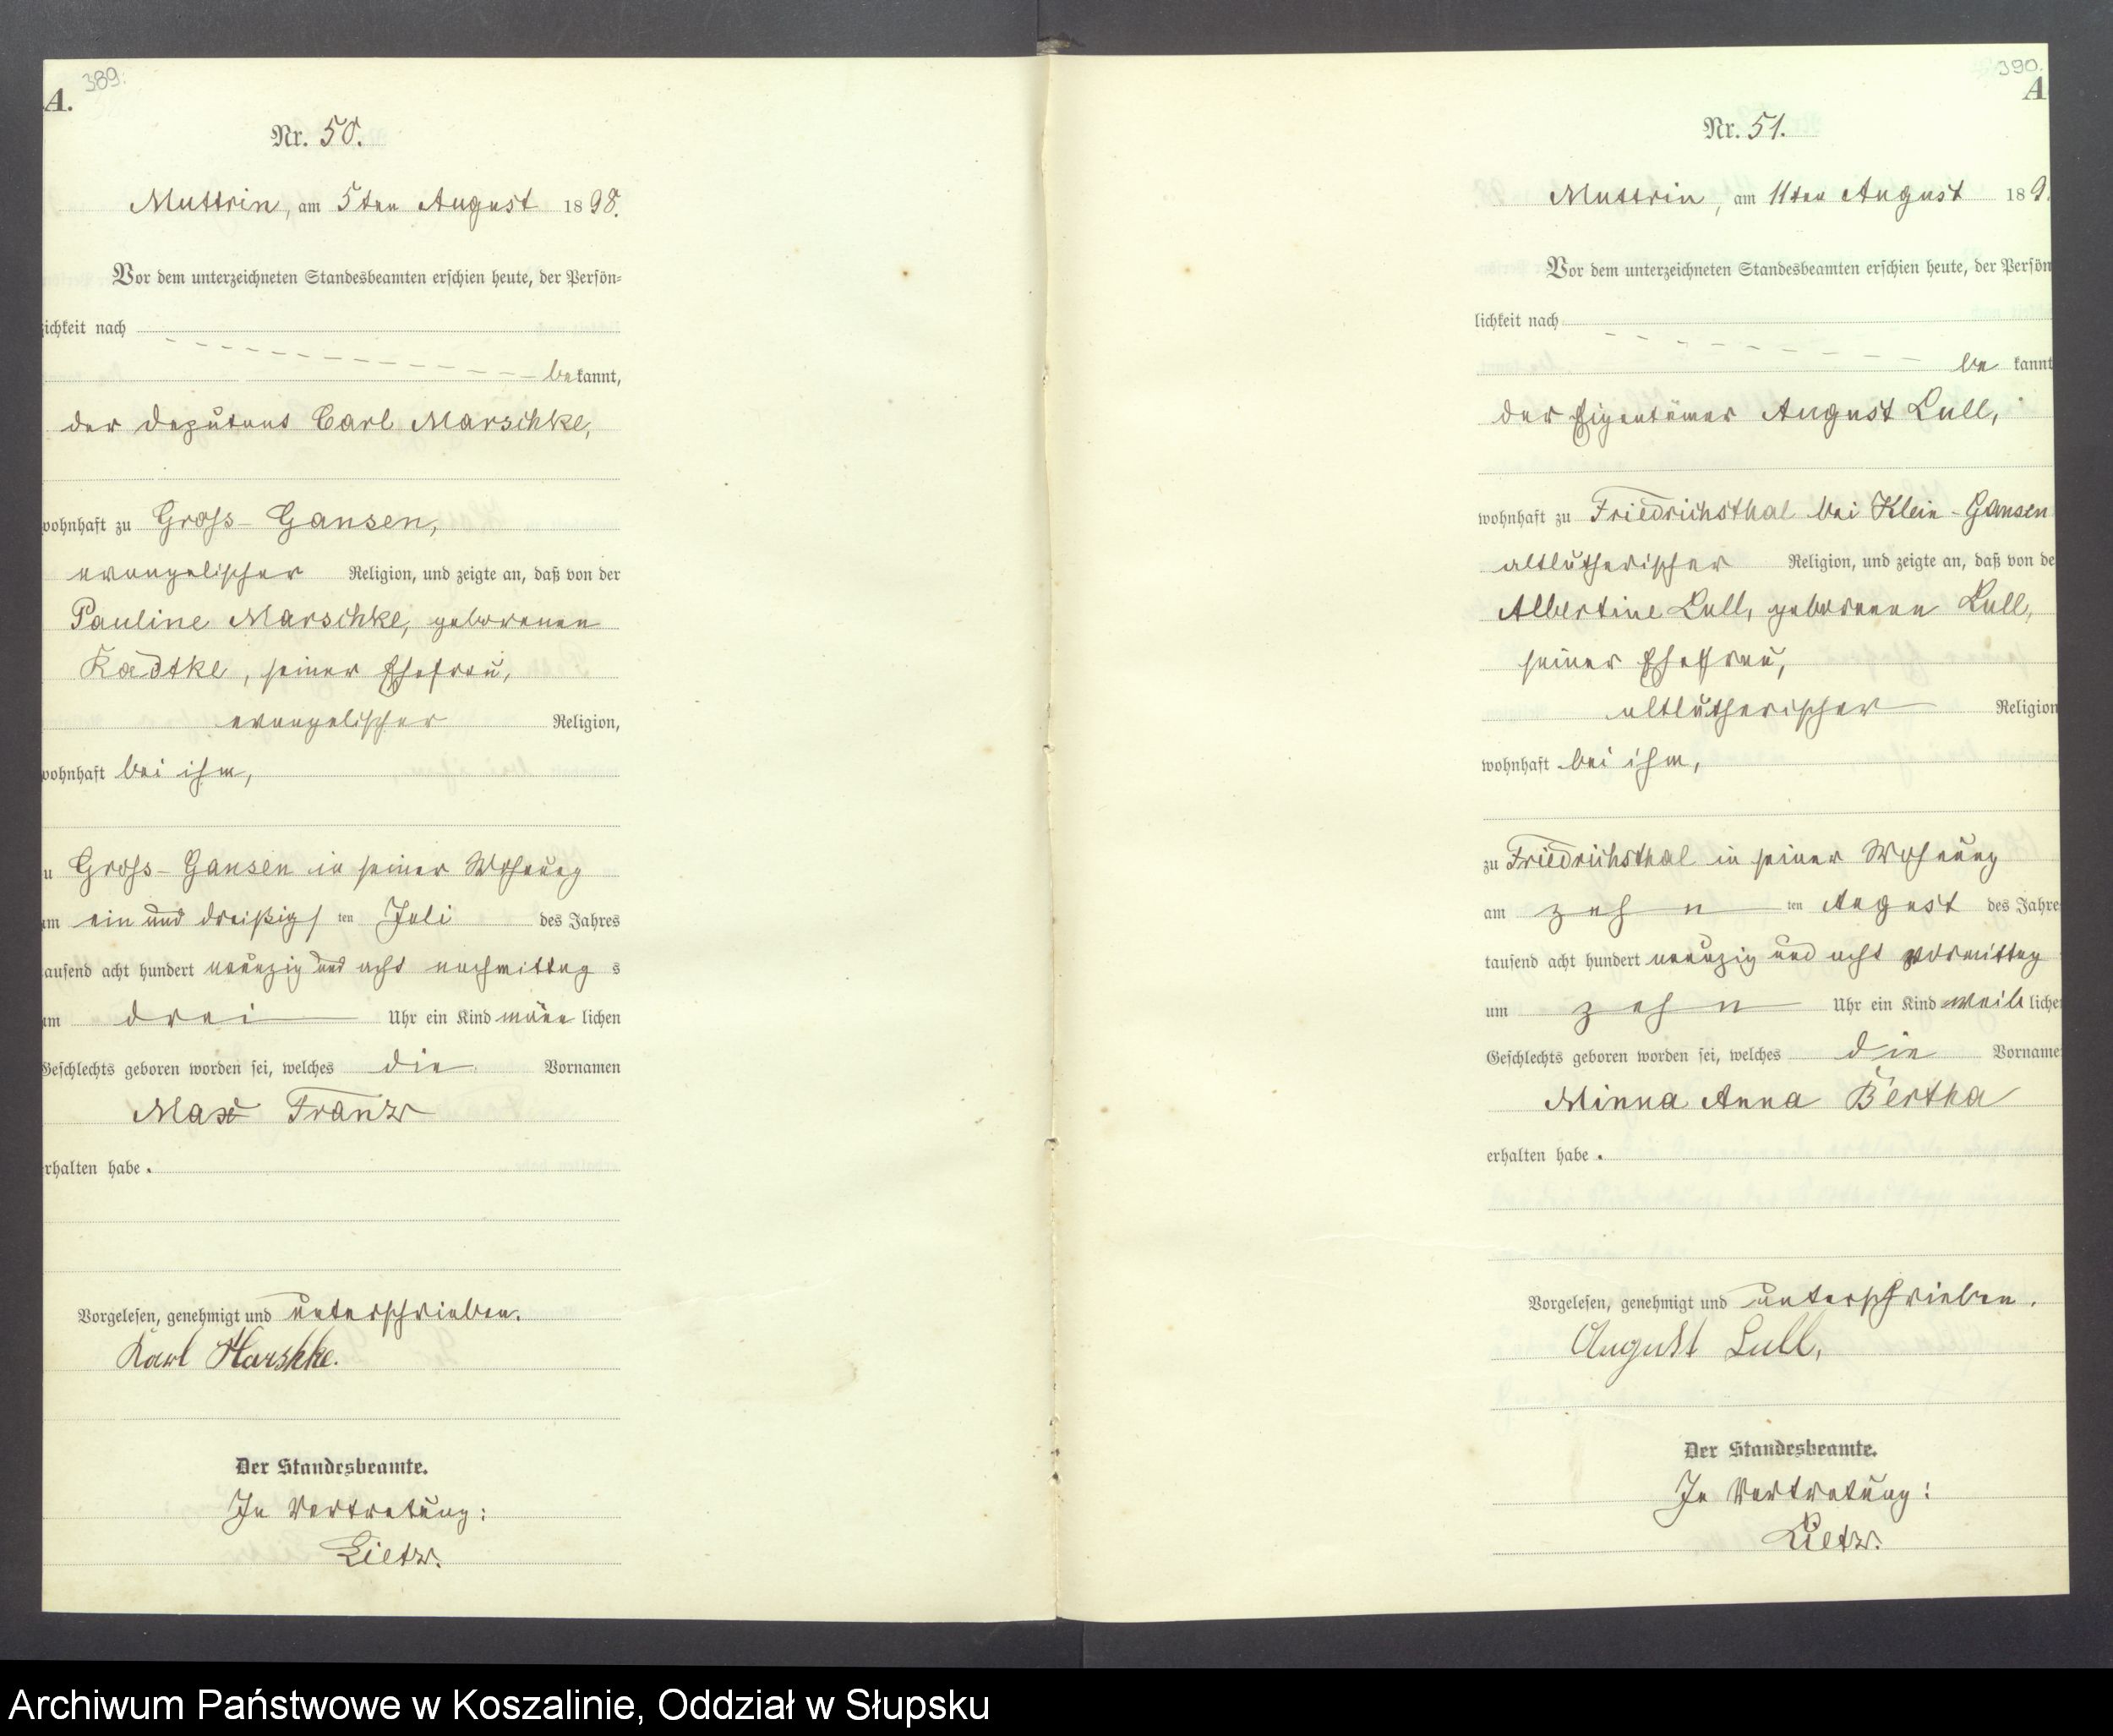 389.
A.
Nr. 50.
Muttrin, am 5ten August 1898.
Vor dem unterzeichneten Standesbeamten erschien heute, der Persön-
lichkeit nach
bekannt,
der Deputant Carl Marschke,
wohnhaft zu Gross-Gansen,
evangelischer Religion, und zeigte an, daß von der
Pauline Marschke, geborenen
Radtke, seiner Ehefrau,
evangelischer Religion,
wohnhaft bei ihm,
zu Gross-Gansen in seiner Wohnung
am ein und dreißigs ten Juli des Jahres
tausend acht hundert neunzig und acht nachmittag s
um drei Uhr ein Kind männ lichen
Geschlechts geboren worden sei, welches die Vornamen
Max Franz
erhalten habe.
Vorgelesen, genehmigt und unterschrieben.
Karl Marshke.
Der Standesbeamte.
In Vertretung:
Lietz.
390.
A
Nr. 51.
Muttrin, am 11ten August 189
Vor dem unterzeichneten Standesbeamten erschien heute, der Persön
lichkeit nach
be kannt
der Eigentümer August Lull,
wohnhaft zu Friedrichsthal bei Klein-Gansen
altlutherischer Religion, und zeigte an, daß von de
Albertine Lull, geborenen Lull,
seiner Ehefrau,
altlutherischer Religion
wohnhaft bei ihm,
zu Friedrichsthal in seiner Wohnung
am zehn ten August des Jahre
tausend acht hundert neunzig und acht vormittag
um zehn Uhr ein Kind weib liche
Geschlechts geboren worden sei, welches die Vorname
Minna Anna Bertha
erhalten habe.
Vorgelesen, genehmigt und unterschrieben.
August Lull,
Der Standesbeamte.
In Vertretung:
Lietz.
Archiwum Państwowe w Koszalinie, Oddział w Słupsku